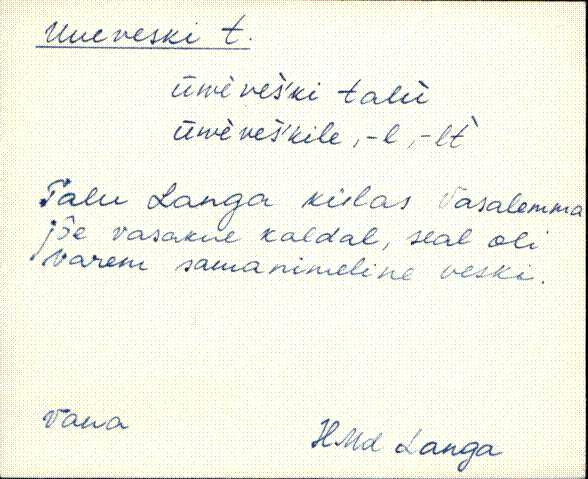 Uueveski t.
ūwèvèš'ki talù
ūwèvèš'kile, -l, -lt
Talu Langa külas Vasalemma
jõe vasakul kaldal, seal oli
varem samanimeline veski.
vana
HMd Langa